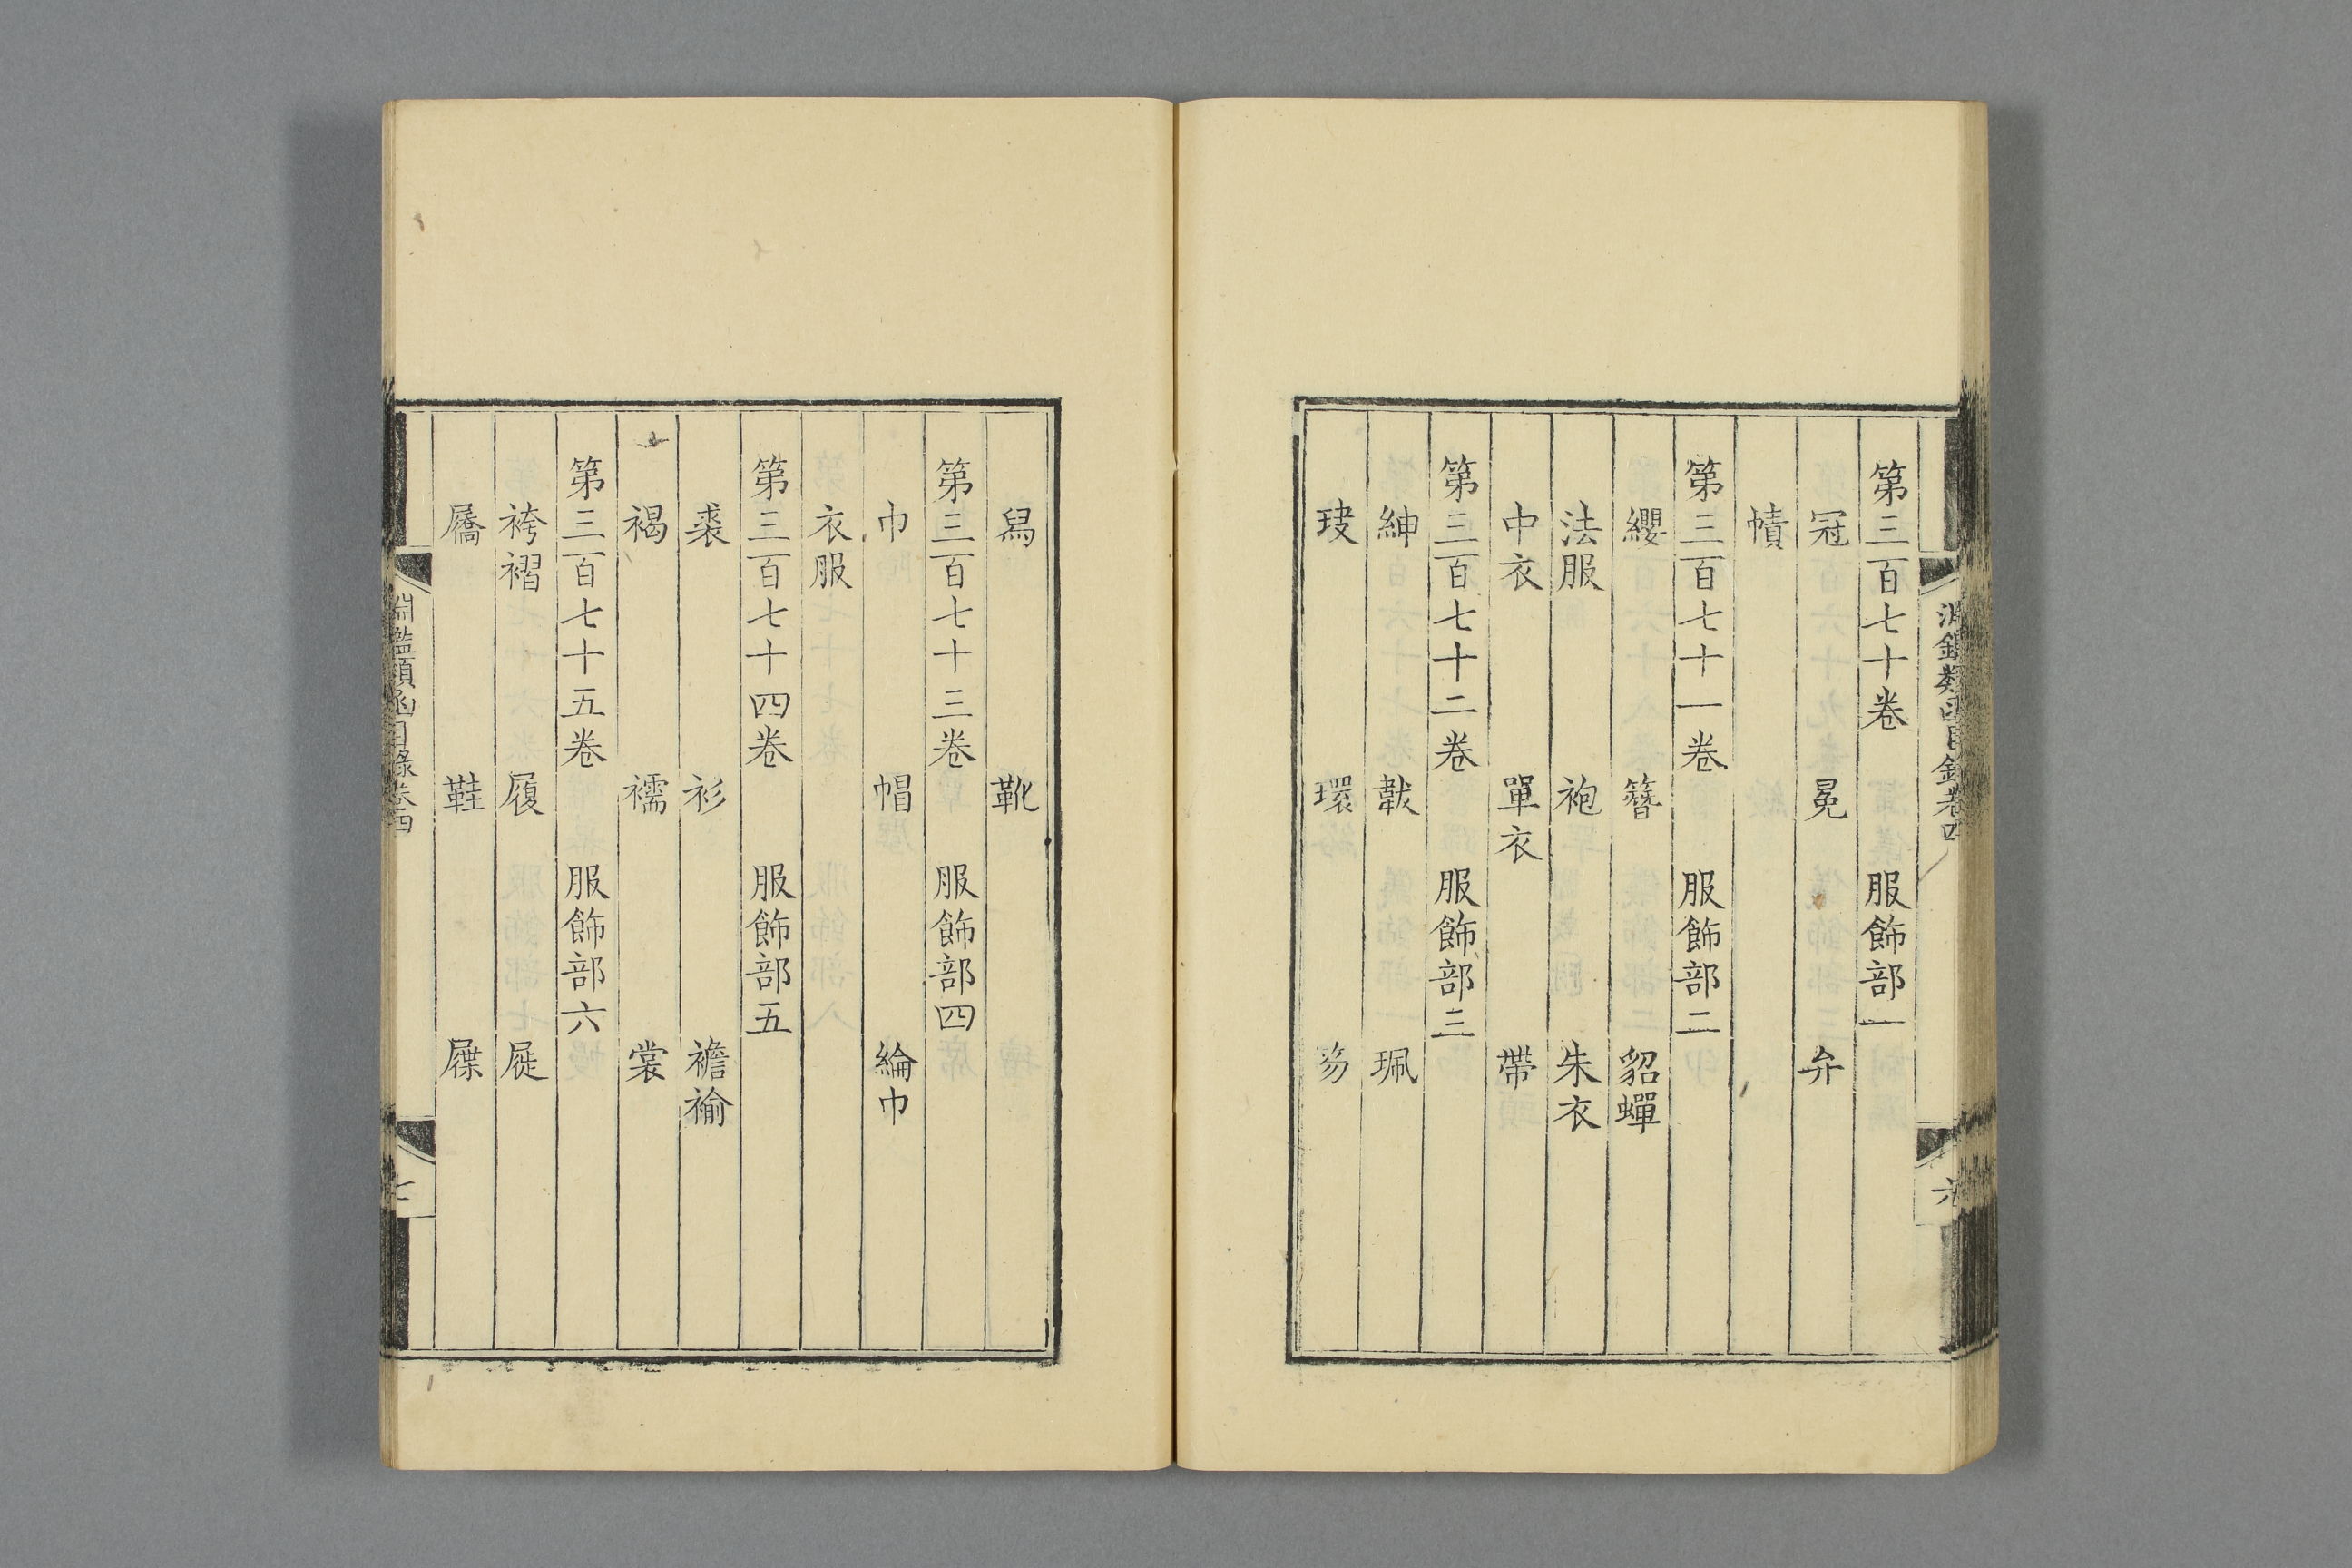 第三百七十卷 服飾部一
冠 冕 弁
幘
第三百七十一卷 服飾部二
纓 簪 貂蟬
法服 袍 朱衣
中衣 單衣 帶
第三百七十二卷 服飾部三
紳 韍 珮
玦 環 笏
淵鑑類函目錄卷四 六
舄 靴
第三百七十三卷 服飾部四
巾 帽 綸巾
衣服
第三百七十四卷 服飾部五
裘 衫 襜褕
褐 襦 裳
第三百七十五卷 服飾部六
袴褶 履 屣
屩 鞋 屧
淵鑑類函目錄卷四 七